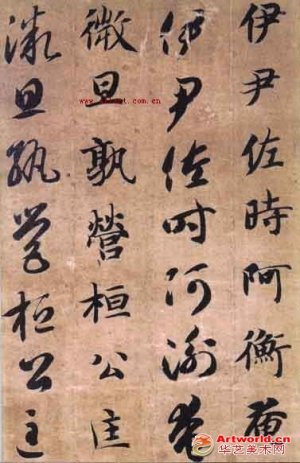 伊尹佐時阿衡奄
伊尹佐時阿衡奄
微旦孰營桓公匡
微旦孰營桓公匡
Artworld.cn
华艺美术网